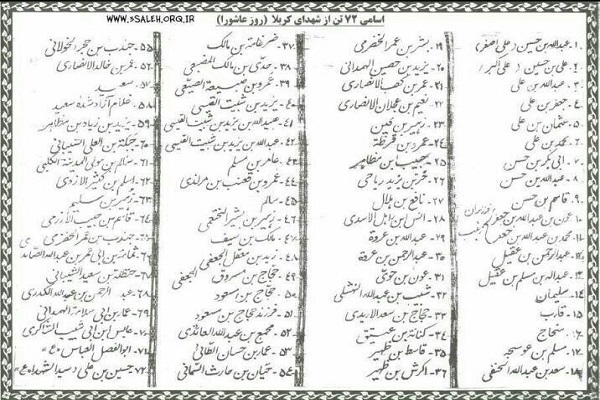 اسامی ۷۲ تن از شهدای کربلا (روز عاشورا)
WWW.3SALEH.ORG.IR
۱- عبدالله بن حسین (علی اصغر)
۲- علی بن حسین (علی اکبر)
۳- عبدالله بن علی
۴- جعفر بن علی
۵- عثمان بن علی
۶- محمد بن علی
۷- ابی بکر بن حسن
۸- عبدالله بن حسن
۹- قاسم بن حسن
۱۰- عون بن عبدالله بن جعفر
۱۱- محمد بن عبدالله بن جعفر
فرزندان زینب
۱۲- عبدالرحمن بن عقیل
۱۳- عبدالله بن مسلم بن عقیل
۱۴- سلیمان
۱۵- قارب
۱۶- منجاح
۱۷- مسلم بن عوسجه
۱۸- سعد بن عبدالله الحنفی
۱۹- بشر بن عمر الحضرمی
۲۰- یزید بن حصین الهمدانی
۲۱- عمر بن کعب الانصاری
۲۲- نعیم بن عجلان الانصاری
۲۳- زهیر بن قین
۲۴- عمر بن قرظة
۲۵- حبیب بن مظاهر
۲۶- حر بن یزید ریاحی
۲۷- نافع بن هلال
۲۸- انس بن کاهل الاسدی
۲۹- عبدالله بن عروة
۳۰- عبدالرحمن بن عروة
۳۱- عون بن حوی
۳۲- شبیب بن عبدالله النهشلی
۳۳- حجاج بن سعد
۳۴- کنانة بن عتیق
۳۵- قاسط بن ظهیر
۳۶- کرش بن ظهیر
۳۷- ضرغامة بن مالک
۳۸- بن مالک
۳۹- عمرو بن ضبیعة الضبیعی
۴۰- یزید بن ثبیت القیسی
۴۱- عبدالله بن یزید بن ثبیت القیسی
۴۲- عبیدالله بن یزید بن ثبیت القیسی
۴۳- عامر بن مسلم
۴۴- عمرو بن قعنب بن
۴۵- سالم
۴۶- زهیر بن بشر الخثعمی
۴۷- مالک بن سیف
۴۸- زید بن معقل الجعفی
۴۹- حجاج بن مسروق الجعفی
۵۰- حجاج بن مسعود
۵۱- فرزند حجاج بن مسعود
۵۲- مجمع بن عبدالله العائذی
۵۳- عمار بن حسان الطائی
۵۴- حیان بن حارث السلمانی
۵۵- جندب بن حجر الخولانی
۵۶- عمر بن خالد الانصاری
۵۷- سعید
۵۸- غلام آزاد شده سعید
۵۹- یزید بن زیاد بن مظاهر
۶۰- جبلة بن العلی الشیبانی
۶۱- سالم بن مولی المدینة الکلبی
۶۲- اسلم بن کثیر الازدی
۶۳- زهیر بن سلیم
۶۴- قاسم بن حبیب الازدی
۶۵- جندب بن عمر الحضرمی
۶۶- ثمامة بن ابی عمر بن عبدالله الصائد
۶۷- حنظلة بن سعید الشیبانی
۶۸- عبد الرحمن بن عبدالله الکدری
۶۹- عمار بن ابی سلامة الهمدانی
۷۰- عابس بن ابی شبیب الشاکری
۷۱- ابوالفضل العباس «ع»
۷۲- حسین بن علی «سیدالشهداء» ع